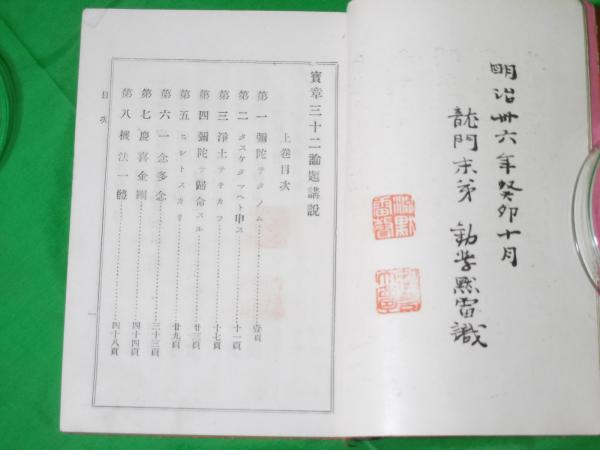 明治卅六年癸卯十月
龍門末弟 勧学黙雷識
寶章三十二論題講説
上卷目次
第一 彌陀ヲタノム………壹頁
第二 タスケタマヘト申ス………十一頁
第三 淨土ヲネカフ………十七頁
第四 彌陀ヲ歸命スル………廿三頁
第五 ニシトスカリ………廿九頁
第六 一念多念………三十三頁
第七 慶喜金剛………四十四頁
第八 機法一體………四十八頁
目次
一